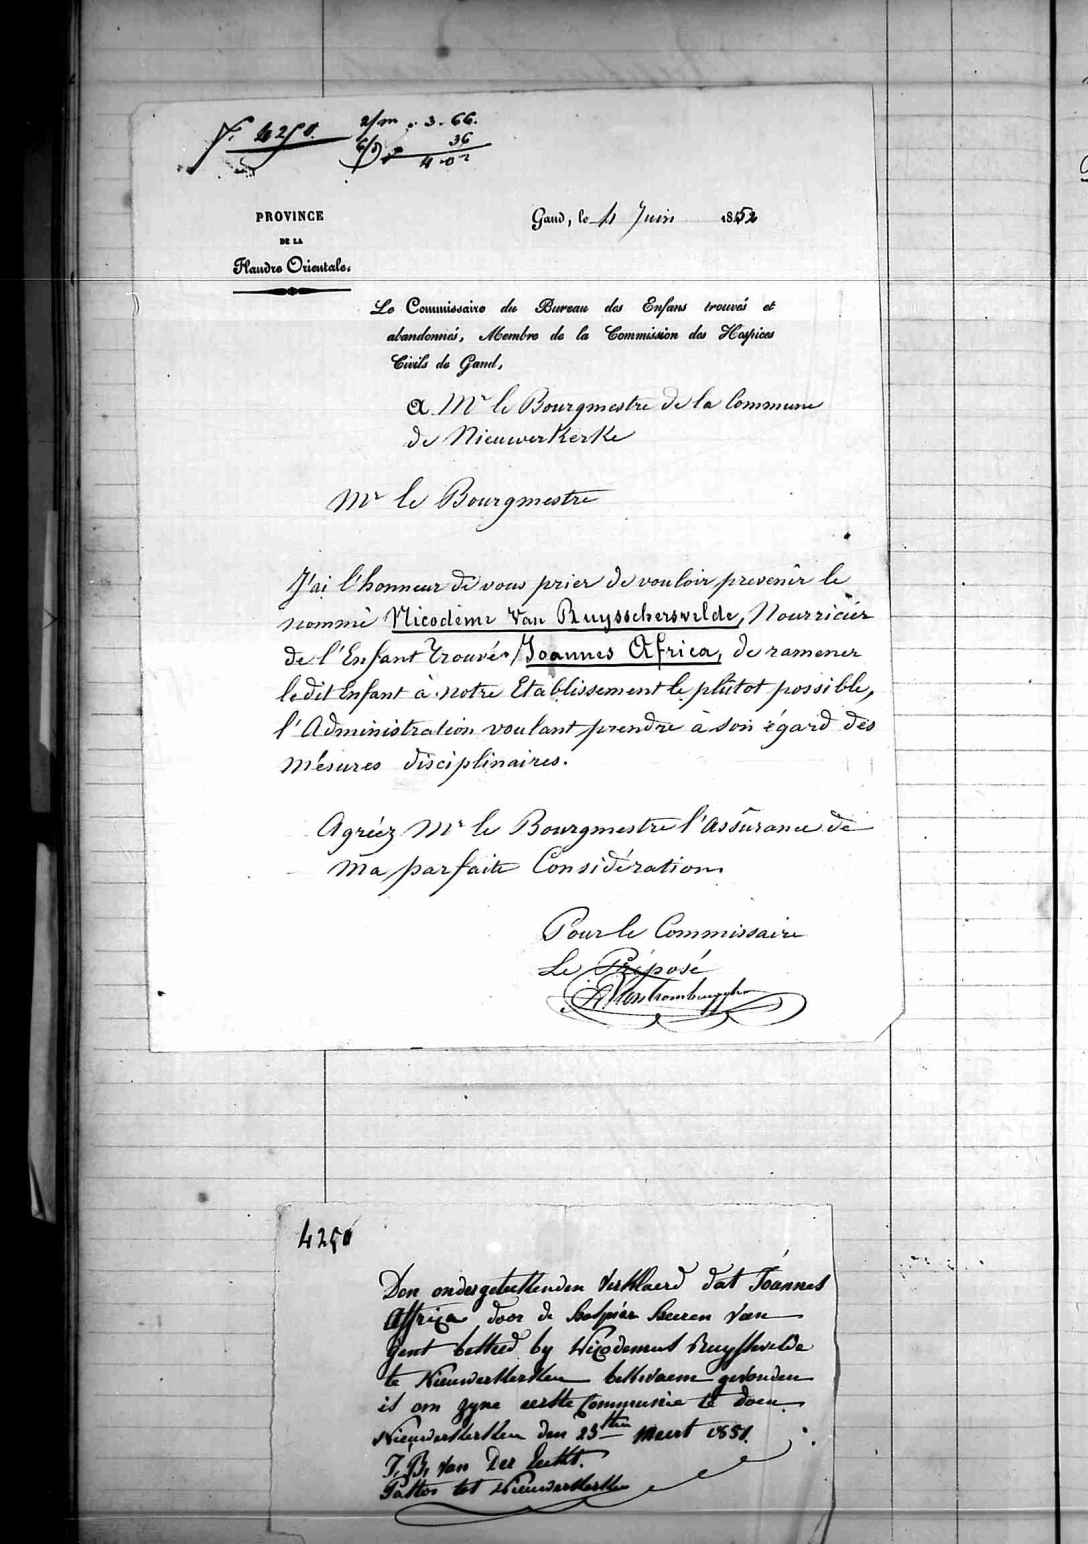 N° 4250.
2/m . 3 . 66.
6/J 36
4 . 02
PROVINCE
DE LA
Flandre Orientale.
Gand, le 4 Juin 1852
Le Commissaire du Bureau des Enfans trouvés et
abandonnés, Membre de la Commission des Hospices
Civils de Gand,
A Mr le Bourgmestre de la Commune
de Nieuwerkerke
Mr le Bourgmestre
J'ai l'honneur de vous prier de vouloir prevenir le
nommé Nicodème Van Ruysscherswelde, Nourricier
de l'Enfant Trouvé Joannes Africa, de ramener
le dit Enfant à notre Etablissement le plûtot possible,
l'Administration voulant prendre à son égard des
Mésures disciplinaires.
Agréez Mr le Bourgmestre l'assûrance de
Ma parfaite Considération
Pour le Commissaire
Le Préposé
4250
Den ondergeteekenden Verklaerd dat Joannes
Affrica door de Hospice heeren van
Gent besteed by Nicodemus Ruysschwelde
te Nieuwerkerken bekwaem gevonden
is om zyne eerste Communie te doen.
Nieuwerkerken den 23sten Meert 1851.
J. B. Van Der Eecht.
Pastor tot Nieuwerkerken